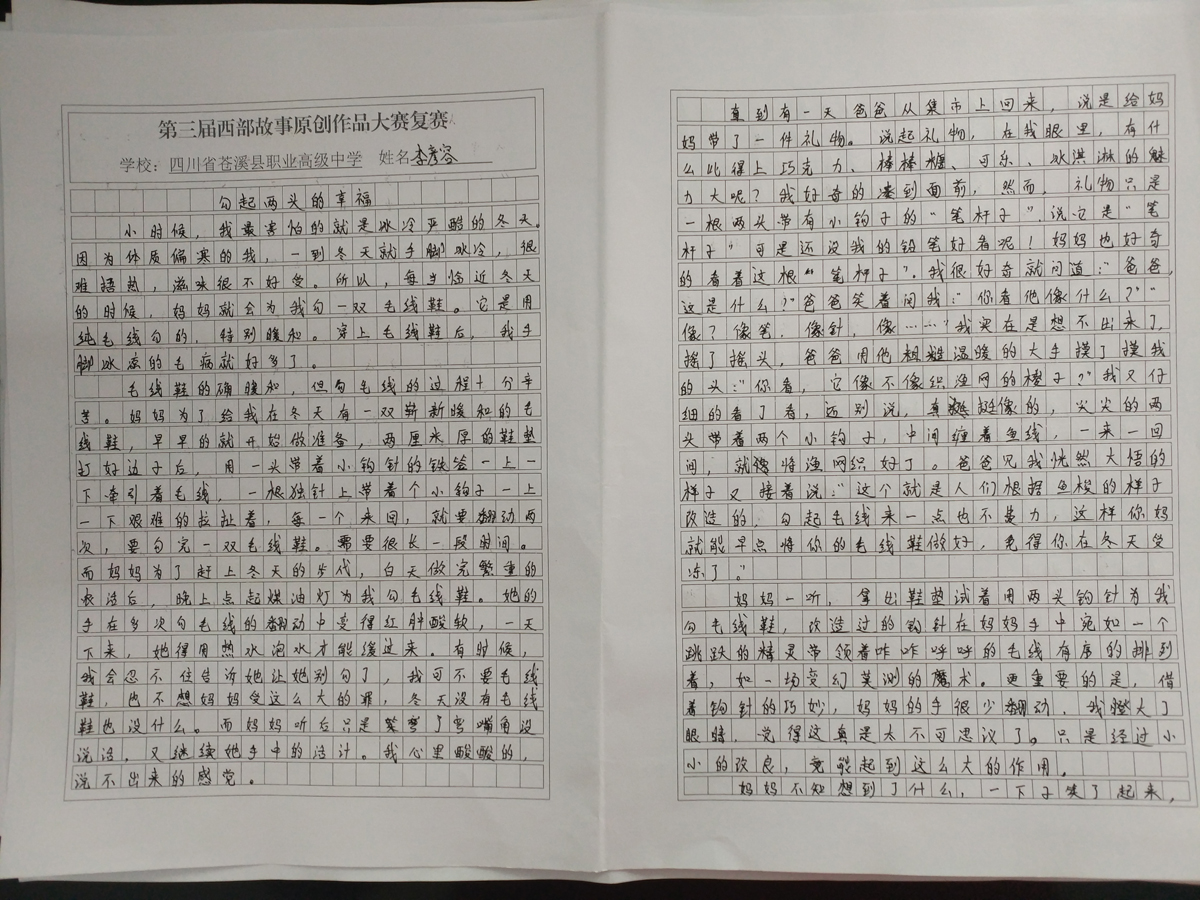 第三届西部故事原创作品大赛复赛
学校：四川省苍溪县职业高级中学 姓名李彦容
勾起两头的幸福
小时候，我最害怕的就是冰冷严酷的冬天。
因为体质偏寒的我，一到冬天就手脚冰冷，很
难捂热，滋味很不好受。所以，每当临近冬天
的时候，妈妈就会为我勾一双毛线鞋。它是用
纯毛线勾的，特别暖和。穿上毛线鞋后，我手
脚冰凉的毛病就好多了。
毛线鞋的确暖和，但勾毛线的过程十分辛
苦。妈妈为了给我在冬天有一双崭新暖和的毛
线鞋，早早的就开始做准备，两厘米厚的鞋垫
打好边子后，用一头带着小钩针的铁签一上一
下牵引着毛线，一根独针上带着个小钩子一上
一下艰难的拉扯着，每一个来回，就要翻动两
次，要勾完一双毛线鞋。需要很长一段时间。
而妈妈为了赶上冬天的步伐，白天做完繁重的
农活后，晚上点起煤油灯为我勾毛线鞋。她的
手在多次勾毛线的翻动中变得红肿酸软，一天
下来，她得用热水泡水才能缓过来。有时候，
我会忍不住告诉她让她别勾了，我可不要毛线
鞋，也不想妈妈受这么大的罪，冬天没有毛线
鞋也没什么。而妈妈听后只是笑弯了弯嘴角没
说话，又继续她手中的活计。我心里酸酸的，
说不出来的感觉。
直到有一天爸爸从集市上回来，说是给妈
妈带了一件礼物。说起礼物，在我眼里，有什
么比得上巧克力、棒棒糖、可乐、冰淇淋的魅
力大呢？我好奇的凑到面前，然而，礼物只是
一根两头带有小钩子的“笔杆子”，说它是“笔
杆子”可是还没我的铅笔好看呢！妈妈也好奇
的看着这根“笔杆子”，我很好奇就问道：“爸爸，
这是什么？”爸爸笑着问我：“你看他像什么？”“
像？像笔，像针，像……”我实在是想不出来了，
摇了摇头，爸爸用他粗糙温暖的大手摸了摸我
的头：“你看，它像不像织渔网的梭子？”我又仔
细的看了看，还别说，真挺像的，尖尖的两
头带着两个小钩子，中间缠着鱼线，一来一回
间，就将渔网织好了。爸爸见我恍然大悟的
样子又接着说：“这个就是人们根据鱼梭的样子
改造的，勾起毛线来一点也不费力，这样你妈
就能早点将你的毛线鞋做好，免得你在冬天受
冻了。”
妈妈一听，拿出鞋垫试着用两头钩针为我
勾毛线鞋，改造过的钩针在妈妈手中宛如一个
跳跃的精灵带领着咋咋呼呼的毛线有序的排列
着，如一场变幻莫测的魔术。更重要的是，借
着钩针的巧妙，妈妈的手很少翻动，我瞪大了
眼睛，觉得这真是太不可思议了。只是经过小
小的改良，竟能起到这么大的作用。
妈妈不知想到了什么，一下子笑了起来，